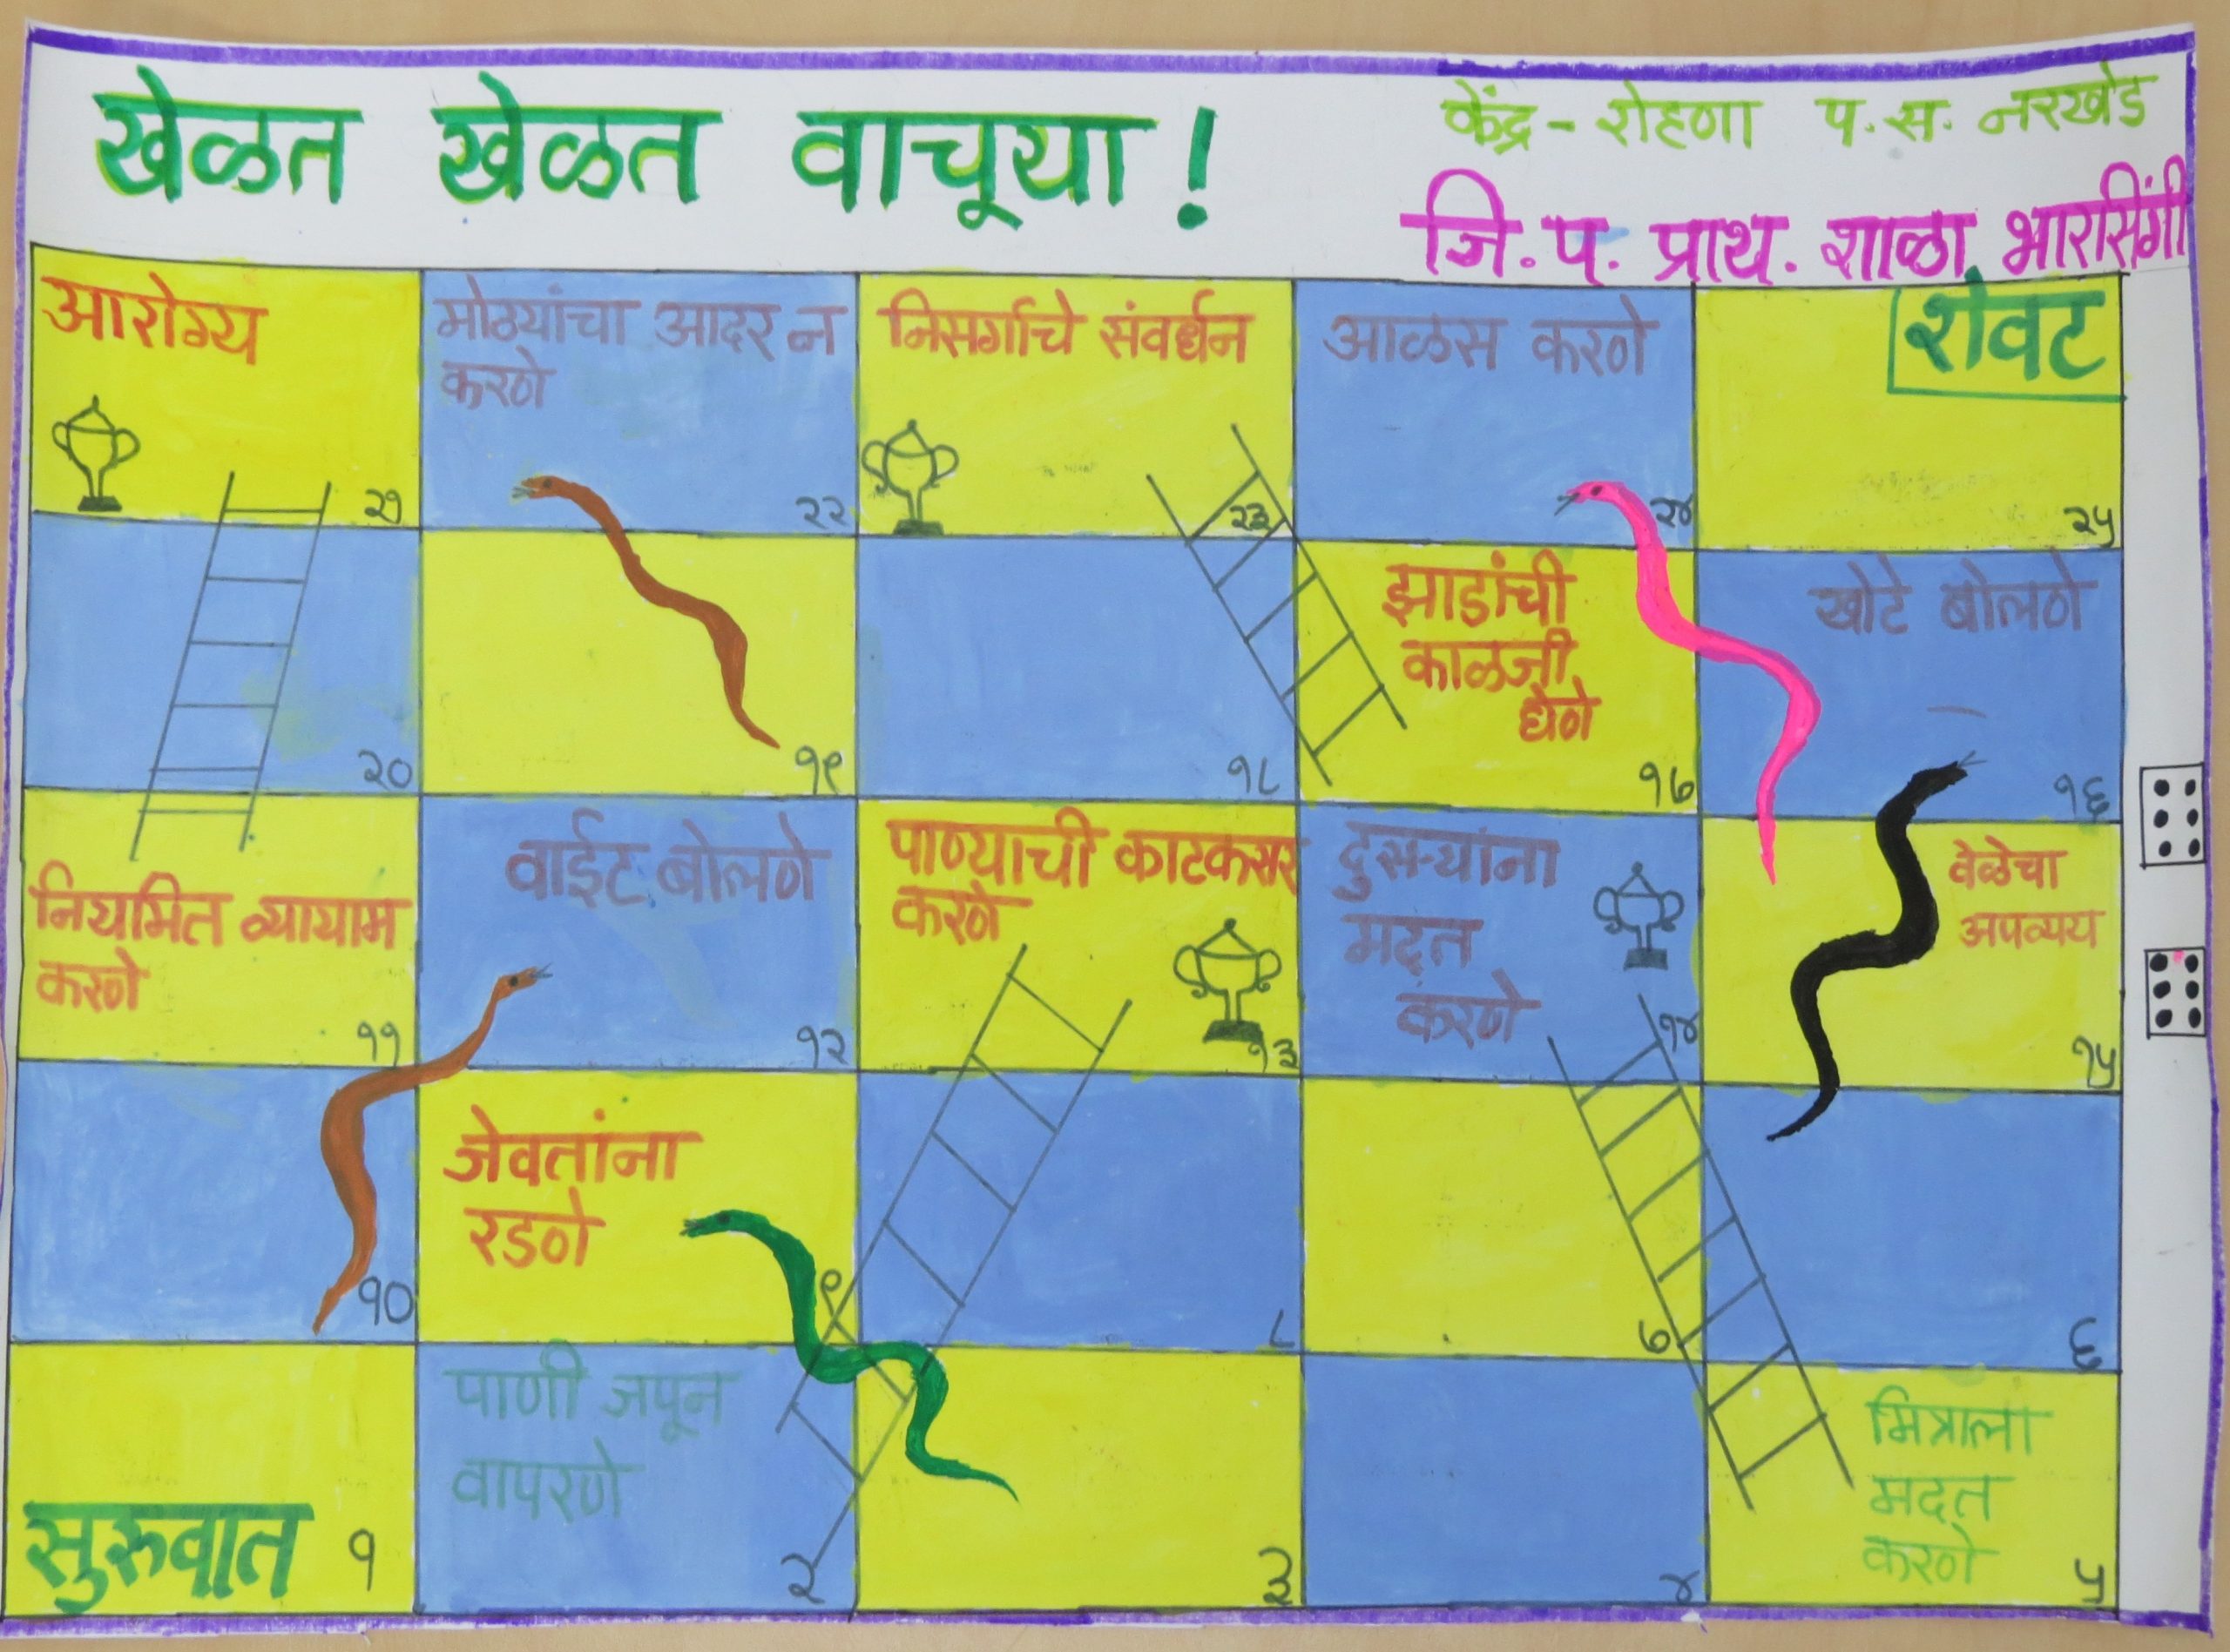 खेळत खेळत वाचूया!
केंद्र - रोहणा प.स. नरखेड
जि.प. प्राथ. शाळा भारसिंगी
आरोग्य
२१
मोठ्यांचा आदर न
करणे
२२
निसर्गाचे संवर्धन
२३
आळस करणे
२४
शेवट
२५
२०
१९
१८
झाडांची
काळजी
घेणे
१७
खोटे बोलणे
१६
नियमित व्यायाम
करणे
११
वाईट बोलणे
१२
पाण्याची काटकसर
करणे
१३
दुसऱ्यांना
मदत
करणे
१४
वेळेचा
अपव्यय
१५
१०
जेवतांना
रडणे
९
८
७
६
सुरुवात १
पाणी जपून
वापरणे
२
३
४
मित्राला
मदत
करणे
५